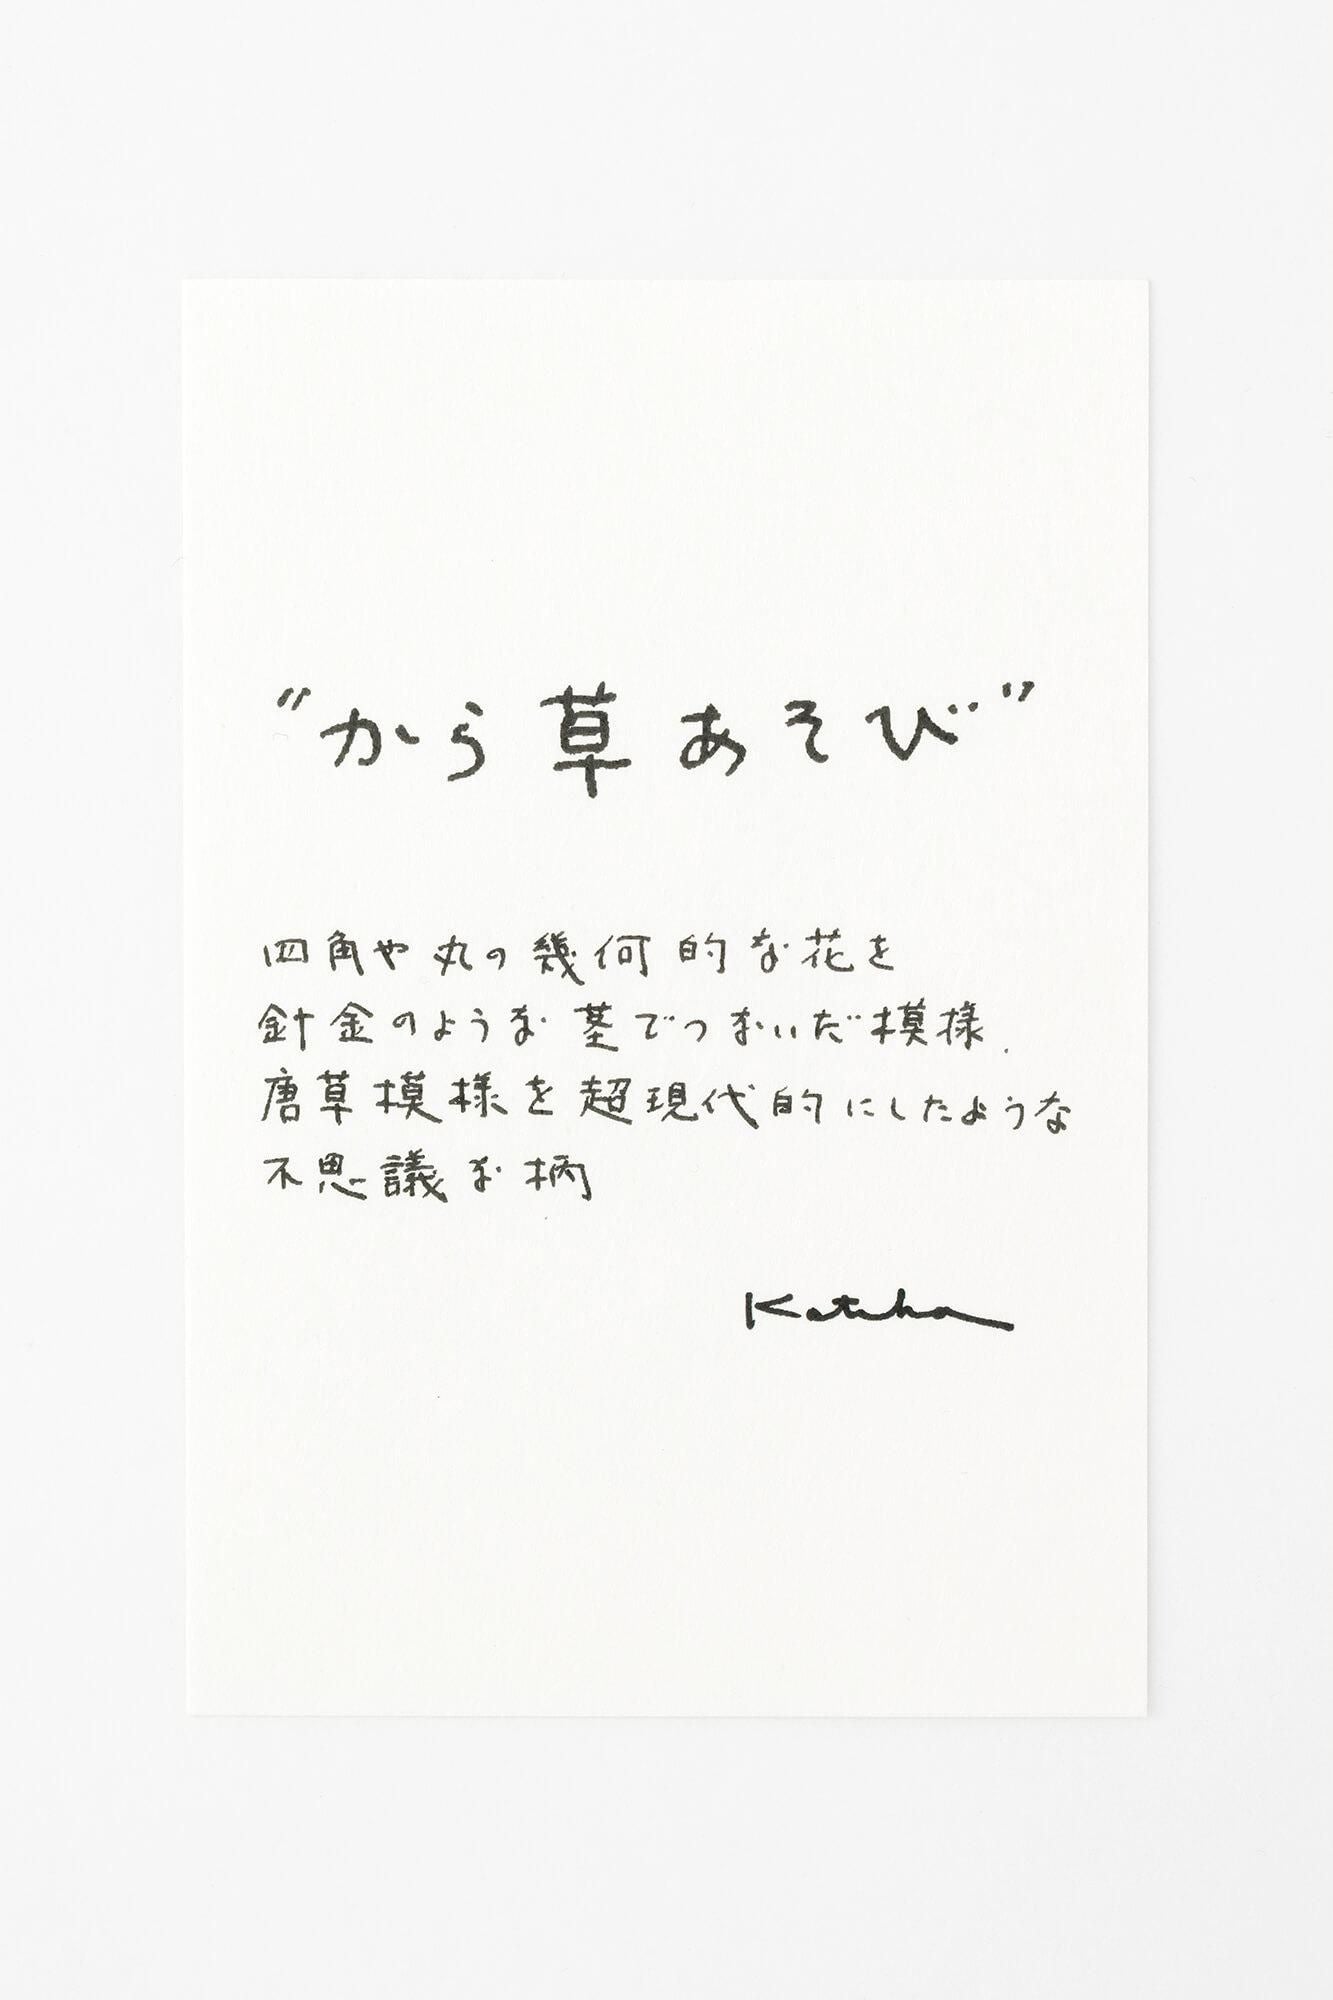 "から草あそび"
四角や丸の幾何的な花を
針金のような茎でつないだ模様.
唐草模様を超現代的にしたような
不思議な柄
Katuha